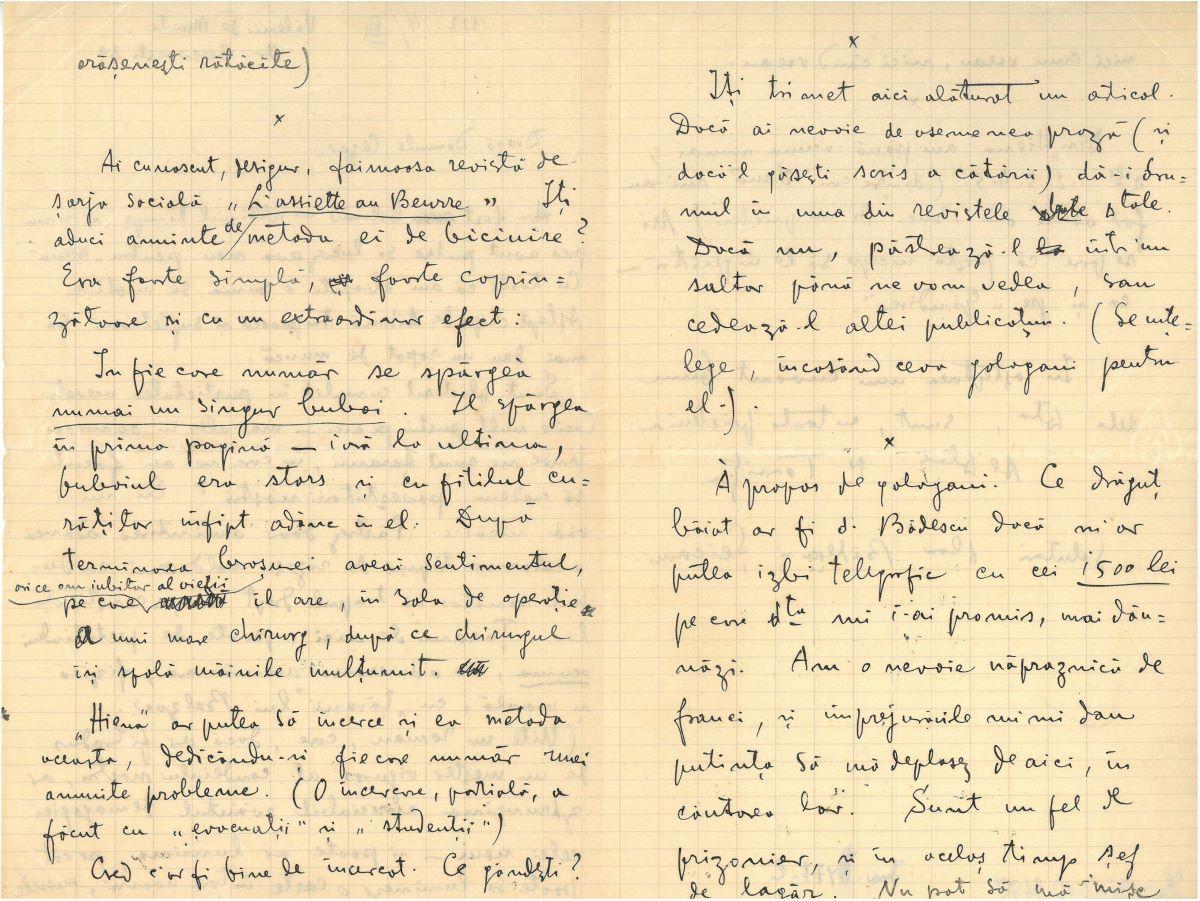 orășenești rătăcite)
x
Ai cunoscut, desigur, faimoasa revistă de
șarja socială „L'assiette au Beurre" Iți
aduci aminte de metoda ei de biciuire?
Era foarte simplă, foarte coprin=
zătoare și cu un extraordinar efect:
In fie care număr se spărgea
numai un singur buboi. Il spărgea
în prima pagină — iară la ultima,
buboiul era stors și cu fitilul cu=
rățitor înfipt adânc în el. După
terminarea broșurei aveai sentimentul,
pe care orice om iubitor al vieții îl are, în sala de operație
a unui mare chirurg, după ce chirurgul
își spală mâinile mulțumit.
„Hiena" ar putea să încerce și ea metoda
aceasta, dedicându-și fiecare număr unei
anumite probleme. (O încercare, parțială, a
făcut cu „evacuații" și „studenții")
Cred c'ar fi bine de încercat. Ce gândești?
x
Iți trimet aici alăturat un articol.
Dacă ai nevoie de asemenea proză (și
dacă'l găsești scris a cătării) dă-i dru=
mul în una din revistele tale.
Dacă nu, păstrează-l într'un
saltar până ne vom vedea, sau
cedează-l altei publicațiuni. (Se înțe=
lege, încasând ceva gologani pentru
el.).
x
À propos de gologani. Ce drăguț
băiat ar fi d. Bădescu dacă mi-ar
putea izbi telegrafic cu cei 1500 lei
pe care dta mi i-ai promis, mai dău=
năzi. Am o nevoie năpraznică de
franci, și împrejurările nu-mi dau
putința să mă deplasez de aici, în
căutarea lor. Sunt un fel de
prizonier, și în acelaș timp șef
de lagăr. Nu pot să mă mișc